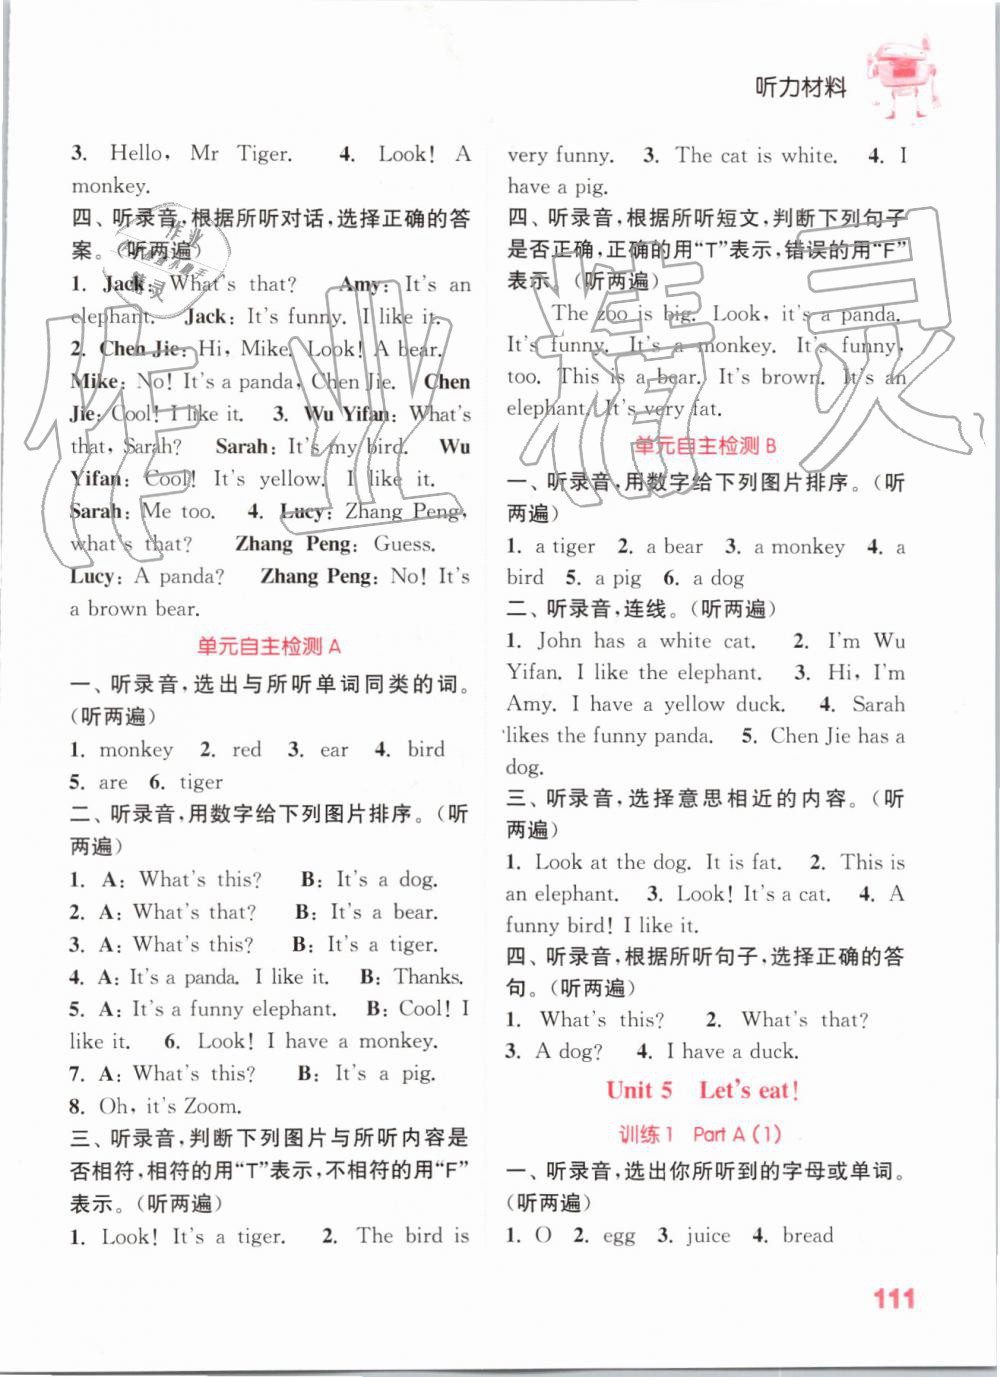 听力材料
3. Hello, Mr Tiger. 4. Look! A
monkey.
四、听录音,根据所听对话,选择正确的答
案。(听两遍)
1. Jack: What's that? Amy: It's an
elephant. Jack: It's funny. I like it.
2. Chen Jie: Hi, Mike. Look! A bear.
Mike: No! It's a panda, Chen Jie. Chen
Jie: Cool! I like it. 3. Wu Yifan: What's
that, Sarah? Sarah: It's my bird. Wu
Yifan: Cool! It's yellow. I like it.
Sarah: Me too. 4. Lucy: Zhang Peng,
what's that? Zhang Peng: Guess.
Lucy: A panda? Zhang Peng: No! It's
a brown bear.
单元自主检测 A
一、听录音,选出与所听单词同类的词。
(听两遍)
1. monkey 2. red 3. ear 4. bird
5. are 6. tiger
二、听录音,用数字给下列图片排序。(听
两遍)
1. A: What's this? B: It's a dog.
2. A: What's that? B: It's a bear.
3. A: What's this? B: It's a tiger.
4. A: It's a panda. I like it. B: Thanks.
5. A: It's a funny elephant. B: Cool! I
like it. 6. Look! I have a monkey.
7. A: What's this? B: It's a pig.
8. Oh, it's Zoom.
三、听录音,判断下列图片与所听内容是
否相符,相符的用“T”表示,不相符的用“F”
表示。(听两遍)
1. Look! It's a tiger. 2. The bird is
very funny. 3. The cat is white. 4. I
have a pig.
四、听录音,根据所听短文,判断下列句子
是否正确,正确的用“T”表示,错误的用“F”
表示。(听两遍)
The zoo is big. Look, it's a panda.
It's funny. It's a monkey. It's funny,
too. This is a bear. It's brown. It's an
elephant. It's very fat.
单元自主检测 B
一、听录音,用数字给下列图片排序。(听
两遍)
1. a tiger 2. a bear 3. a monkey 4. a
bird 5. a pig 6. a dog
二、听录音,连线。(听两遍)
1. John has a white cat. 2. I'm Wu
Yifan. I like the elephant. 3. Hi, I'm
Amy. I have a yellow duck. 4. Sarah
likes the funny panda. 5. Chen Jie has a
dog.
三、听录音,选择意思相近的内容。(听
两遍)
1. Look at the dog. It is fat. 2. This is
an elephant. 3. Look! It's a cat. 4. A
funny bird! I like it.
四、听录音,根据所听句子,选择正确的答
句。(听两遍)
1. What's this? 2. What's that?
3. A dog? 4. I have a duck.
Unit 5 Let's eat!
训练1 Part A (1)
一、听录音,选出你所听到的字母或单词。
(听两遍)
1. O 2. egg 3. juice 4. bread
111
作业精灵